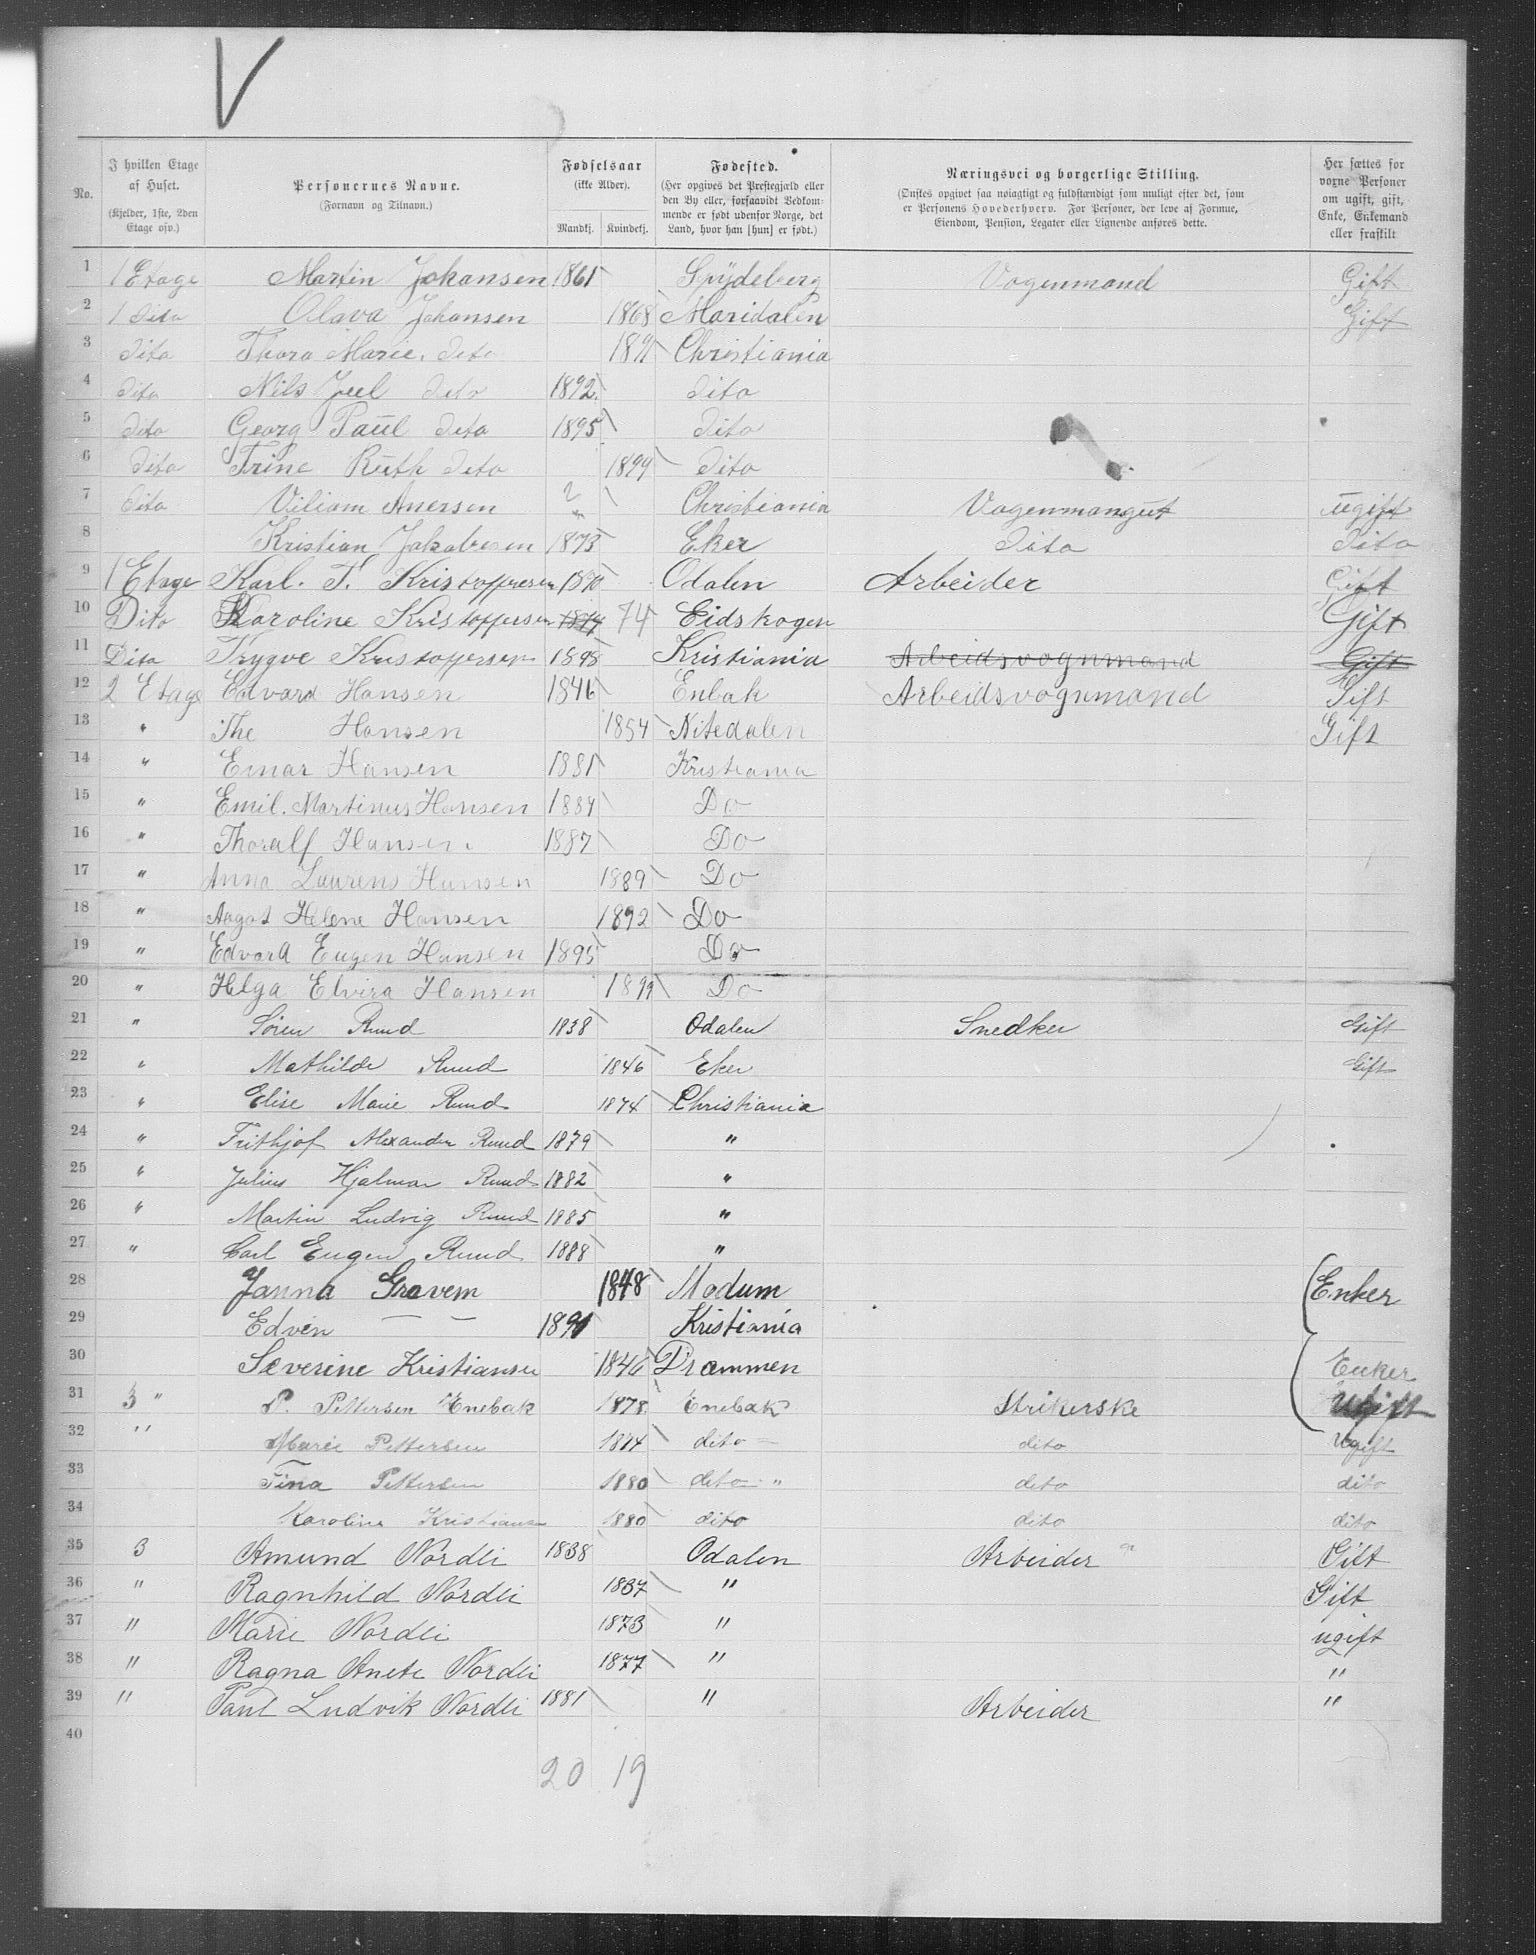 V
No. | I hvilken Etage af Huset. (Kjelder, 1ste, 2den Etage osv.) | Personernes Navne. (Fornavn og Tilnavn.) | Fødselsaar (ikke Alder). Mandkj. Kvindekj. | Fødested. (Her opgives det Prestegjæld eller den By eller, forsaavidt Bedkommende er født udenfor Norge, det Land, hvor han [hun] er født.) | Næringsvei og borgerlige Stilling. (Ønskes opgivet saa nøiagtigt og fuldstændigt som muligt efter det, som er Personens Hovederhverv. For Personer, der leve af Formue, Eiendom, Pension, Legater eller Lignende anføres dette. | Her sættes for voxne Personer om ugift, gift, Enke, Enkemand eller fraskilt
1 1 Etage Martin Johansen 1861 Spydeberg Vogenmand Gift
2 1 dito Olava Johansen 1868 Maridalen Gift
3 dito Thora Marie dito 1891 Christiania
4 dito Nils Juel dito 1892 dito
5 dito Georg Paul dito 1895 dito
6 dito Trine Ruth dito 1899 dito
7 dito Viliam Anersen Christiania Vogenmangut ugift
8 Kristian Jakobsen 1873 Eker dito dito
9 1 Etage Karl. T. Kristoffersen 1870 Odalen Arbeider Gift
10 Dito Karoline Kristoffersen 1874 74 Eidskogen Gift
11 Dito Trygve Kristoffersen 1898 Kristiania Arbeidsvognmand Gift
12 2 Etage Edvard Hansen 1846 Enbak Arbeidsvognmand Gift
13 " The Hansen 1854 Nitedalen Gift
14 " Einar Hansen 1881 Kristiania
15 " Emil. Martinus Hansen 1884 Do
16 " Thoralf Hansen 1887 Do
17 " Anna Laurens Hansen 1889 Do
18 " Aagot Helene Hansen 1892 Do
19 " Edvard Eugen Hansen 1895 Do
20 " Helga Elvira Hansen 1899 Do
21 " Søren Ruud 1838 Odalen Snedker Gift
22 " Mathilde Ruud 1846 Eker Gift
23 " Elise Marie Ruud 1874 Christiania
24 " Frithjof Alexander Ruud 1879 "
25 " Julius Hjalmar Ruud 1882 "
26 " Martin Ludvig Ruud 1885 "
27 " Carl Eugen Ruud 1888 "
28 Janna Gravem 1848 Modum Enker
29 Edven — — 1891 Kristiania
30 Severine Kristiansen 1846 Drammen Enker
31 3 " P. Pettersen Enebak 1878 Enebak Strikerske Ugift
32 " Marie Pettersen 1874 dito dito Ugift
33 Tina Pettersen 1880 dito " dito dito
34 Karoline Kristiansen 1880 dito dito dito
35 3 Amund Nordli 1838 Odalen Arbeider Gift
36 " Ragnhild Nordli 1837 " Gift
37 " Marie Nordli 1873 " ugift
38 " Ragna Anete Nordli 1877 " "
39 " Paul Ludvik Nordli 1881 " Arbeider "
40
20 19